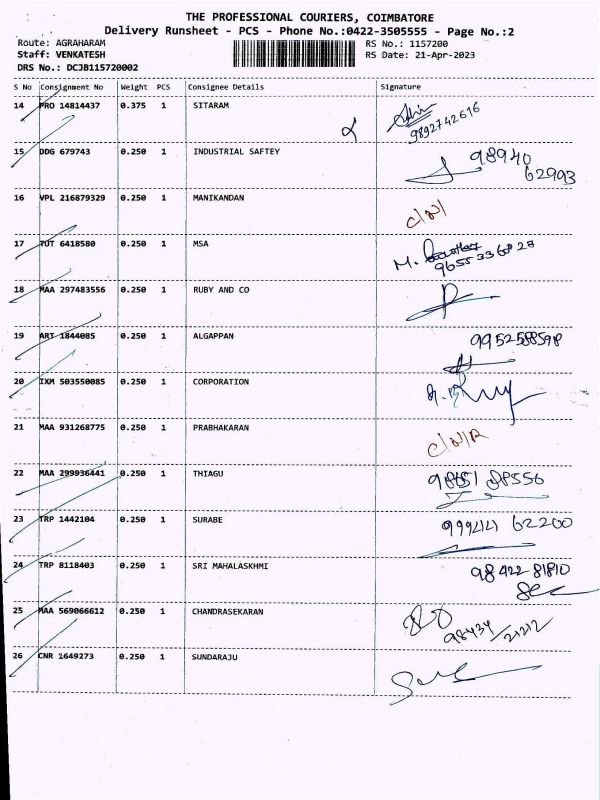 THE PROFESSIONAL COURIERS, COIMBATORE
Delivery Runsheet - PCS - Phone No.:0422-3505555 - Page No.:2
Route: AGRAHARAM RS No.: 1157200
Staff: VENKATESH RS Date: 21-Apr-2023
DRS No.: DCJB115720002
S No Consignment No Weight PCS Consignee Details Signature
14 PRO 14814437 0.375 1 SITARAM
9892742616
15 DDG 679743 0.250 1 INDUSTRIAL SAFTEY 98940
62993
16 VPL 216879329 0.250 1 MANIKANDAN C/N/
17 TUT 6418580 0.250 1 MSA M.
9655336828
18 MAA 297483556 0.250 1 RUBY AND CO
19 ART 1844085 0.250 1 ALGAPPAN 9952588598
20 IXM 503550085 0.250 1 CORPORATION
21 MAA 931268775 0.250 1 PRABHAKARAN C/N/R
22 MAA 299936441 0.250 1 THIAGU 98651 88556
23 TRP 1442104 0.250 1 SURABE 99944 62200
24 TRP 8118403 0.250 1 SRI MAHALASKHMI 98422 81810
25 MAA 569066612 0.250 1 CHANDRASEKARAN
98434/21212
26 CNR 1649273 0.250 1 SUNDARAJU